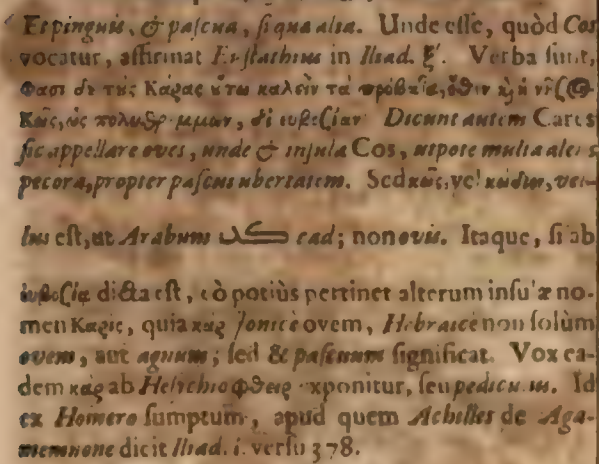 Et pinguis, & pascua, si qua alia. Unde esse, quòd Cos
vocatur, affirmat Eustathius in Iliad. ξ'. Verba sunt,
Φασὶ δὲ τὺς Κάρας ὕτω καλεῖν τὰ πρόβατα, ὅθεν κỳ ἡ νῆσ⊕
Κῶς, ὡς πολυθρέμμων, δι' εὐβοσίαν Dicunt autem Cares
sic appellare oves, unde & insula Cos, utpote multa alens
pecora, propter pascuis ubertatem. Sed κῶς, vel κώδιον, vel-
lus est, ut Arabum كد cad; non ovis. Itaque, si ab
εὐβοσίᾳ dicta est, eò potiùs pertinet alterum insulæ no-
men Καρὶς, quia κὰρ Ionicè ovem, Hebraicè non solùm
ovem, aut agnum; sed & pascuum significat. Vox ea-
dem κὰρ ab Hesychio φθεὶρ exponitur, seu pediculus. Id
ex Homero sumptum, apud quem Achilles de Aga-
memnone dicit Iliad. i. versu 378.